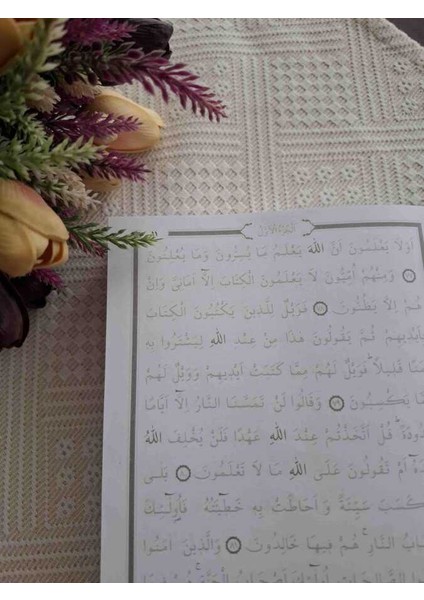 أَوَلَا يَعْلَمُونَ أَنَّ اللهَ يَعْلَمُ مَا يُسِرُّونَ وَمَا يُعْلِنُونَ
٧٧ وَمِنْهُمْ أُمِّيُّونَ لَا يَعْلَمُونَ الْكِتَابَ إِلَّآ أَمَانِيَّ وَإِنْ
هُمْ إِلَّا يَظُنُّونَ ٧٨ فَوَيْلٌ لِلَّذِينَ يَكْتُبُونَ الْكِتَابَ
بِأَيْدِيهِمْ ثُمَّ يَقُولُونَ هٰذَا مِنْ عِنْدِ اللهِ لِيَشْتَرُوا بِهِ
قَلِيلًا فَوَيْلٌ لَهُمْ مِمَّا كَتَبَتْ أَيْدِيهِمْ وَوَيْلٌ لَهُمْ
يَكْسِبُونَ ٧٩ وَقَالُوا لَنْ تَمَسَّنَا النَّارُ إِلَّآ أَيَّامًا
قُلْ أَتَّخَذْتُمْ عِنْدَ اللهِ عَهْدًا فَلَنْ يُخْلِفَ اللهُ
أَمْ تَقُولُونَ عَلَى اللهِ مَا لَا تَعْلَمُونَ ٨٠ بَلٰى
كَسَبَ سَيِّئَةً وَأَحَاطَتْ بِهِ خَطِيئَتُهُ فَأُولٰٓئِكَ
النَّارِ هُمْ فِيهَا خَالِدُونَ ٨١ وَالَّذِينَ آمَنُوا